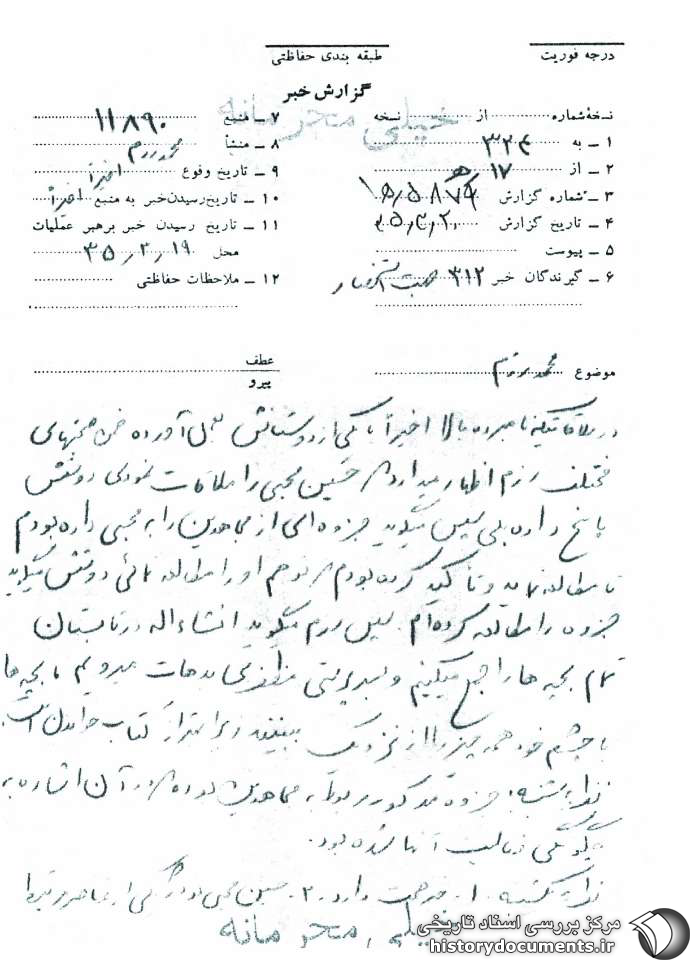 درجه فوریت
طبقه بندی حفاظتی
گزارش خبر
خیلی محرمانه
نسخهٔ شماره از نسخه
۱ – به ۳۲۴
۲ – از ۱۷ ه
۳ – شماره گزارش
۴ – تاریخ گزارش ۳۵٫۳٫۲۰
۵ – پیوست
۶ – گیرندگان خبر ۳۱۲ جهت استحضار
۷ – منبع ۱۱۸۹۰
۸ – منشأ محمد رزم
۹ – تاریخ وقوع اخیراً
۱۰ – تاریخ رسیدن خبر به منبع اخیراً
۱۱ – تاریخ رسیدن خبر برهبر عملیات
محل ۳۵٫۳٫۱۹
۱۲ – ملاحظات حفاظتی
موضوع محمد رزم
عطف
پیرو
در ملاقاتیکه نامبرده بالا اخیراً با یکی از دوستانش بعمل آورده ضمن صحبتهای
مختلف رزم اظهار میدارد حسین محبی را ملاقات نمودی دوستش
پاسخ داده بلی سپس میگوید جزوه ای از مجاهدین را به محبی داده بودم
تا مطالعه نماید و تأکید کرده بودم که تو هم او را مطالعه نمائی دوستش میگوید
جزوه را مطالعه کرده‌ام. سپس رزم میگوید انشاءاله در تابستان
تمام بچه ها را جمع میکنیم و بسرپرستی بدهات میرویم تا بچه ها
با چشم خود همه چیز را از نزدیک ببینند زیرا بهتر از کتاب خواندن است.
نظریه شنبه. جزوه مذکور مربوط به مجاهدین بوده که در آن اشاره به
چگونگی فعالیت آنها شده بود.
نظریه یکشنبه. ۱. صحت دارد. ۲. حسین محبی یکی از عناصر
خیلی محرمانه
مرکز بررسی اسناد تاریخی
historydocuments.ir